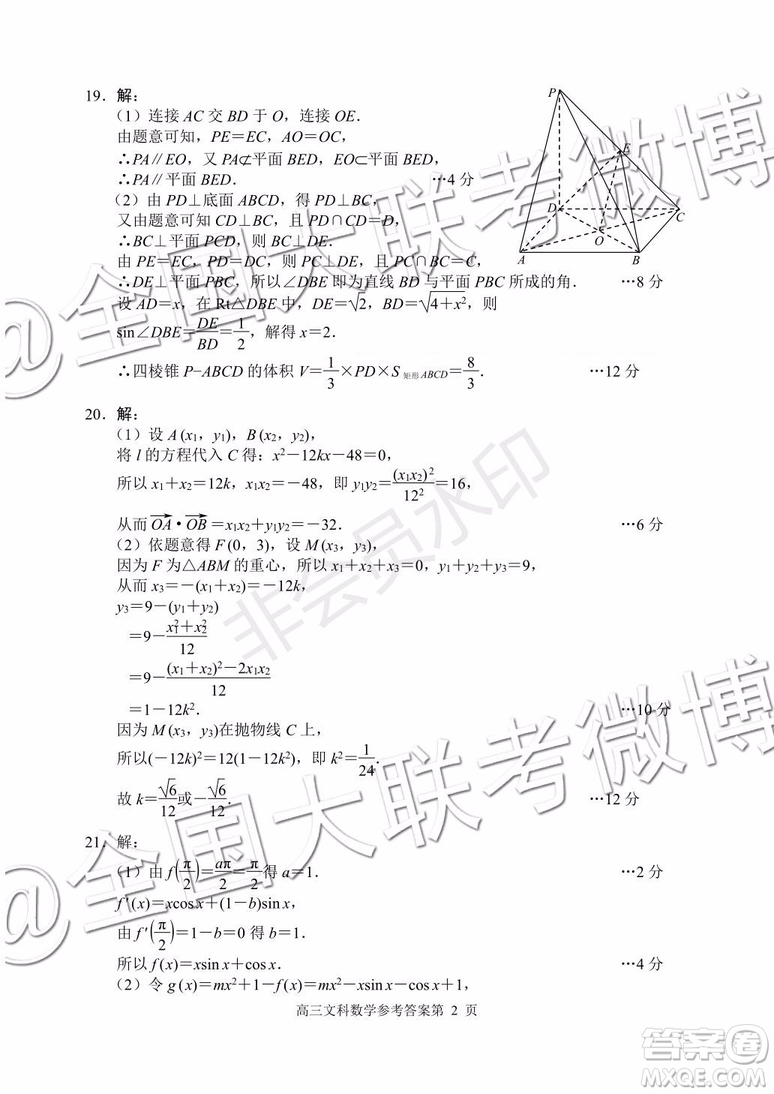 19．解：
（1）连接 AC 交 BD 于 O，连接 OE．
由题意可知，PE＝EC，AO＝OC，
∴PA∥EO，又 PA⊄平面 BED，EO⊂平面 BED，
∴PA∥平面 BED． …4 分
（2）由 PD⊥底面 ABCD，得 PD⊥BC，
又由题意可知 CD⊥BC，且 PD∩CD＝D，
∴BC⊥平面 PCD，则 BC⊥DE．
由 PE＝EC，PD＝DC，则 PC⊥DE，且 PC∩BC＝C，
∴DE⊥平面 PBC，所以∠DBE 即为直线 BD 与平面 PBC 所成的角． …8 分
设 AD＝x，在 Rt△DBE 中，DE＝√2，BD＝√(4＋x²)，则
sin∠DBE＝DE/BD＝1/2，解得 x＝2．
∴四棱锥 P−ABCD 的体积 V＝1/3×PD×S 矩形 ABCD＝8/3． …12 分
P
E
D
C
O
A
B
20．解：
（1）设 A (x₁，y₁)，B (x₂，y₂)，
将 l 的方程代入 C 得：x²－12kx－48＝0，
所以 x₁＋x₂＝12k，x₁x₂＝－48，即 y₁y₂＝(x₁x₂)²/12²＝16，
从而 OA→•OB→＝x₁x₂＋y₁y₂＝－32． …6 分
（2）依题意得 F (0，3)，设 M (x₃，y₃)，
因为 F 为△ABM 的重心，所以 x₁＋x₂＋x₃＝0，y₁＋y₂＋y₃＝9，
从而 x₃＝－(x₁＋x₂)＝－12k，
y₃＝9－(y₁＋y₂)
＝9－(x₁²＋x₂²)/12
＝9－((x₁＋x₂)²－2x₁x₂)/12
＝1－12k²． …10 分
因为 M (x₃，y₃)在抛物线 C 上，
所以(－12k)²＝12(1－12k²)，即 k²＝1/24．
故 k＝√6/12或－√6/12． …12 分
21．解：
（1）由 f(π/2)＝aπ/2＝π/2得 a＝1． …2 分
f′(x)＝xcosx＋(1－b)sinx，
由 f′(π/2)＝1－b＝0 得 b＝1．
所以 f (x)＝xsinx＋cosx． …4 分
（2）令 g (x)＝mx²＋1－f(x)＝mx²－xsinx－cosx＋1，
高三文科数学参考答案第 2 页
@全国大联考微博
@全国大联考微博
非会员水印
答案圈
MXQE.COM